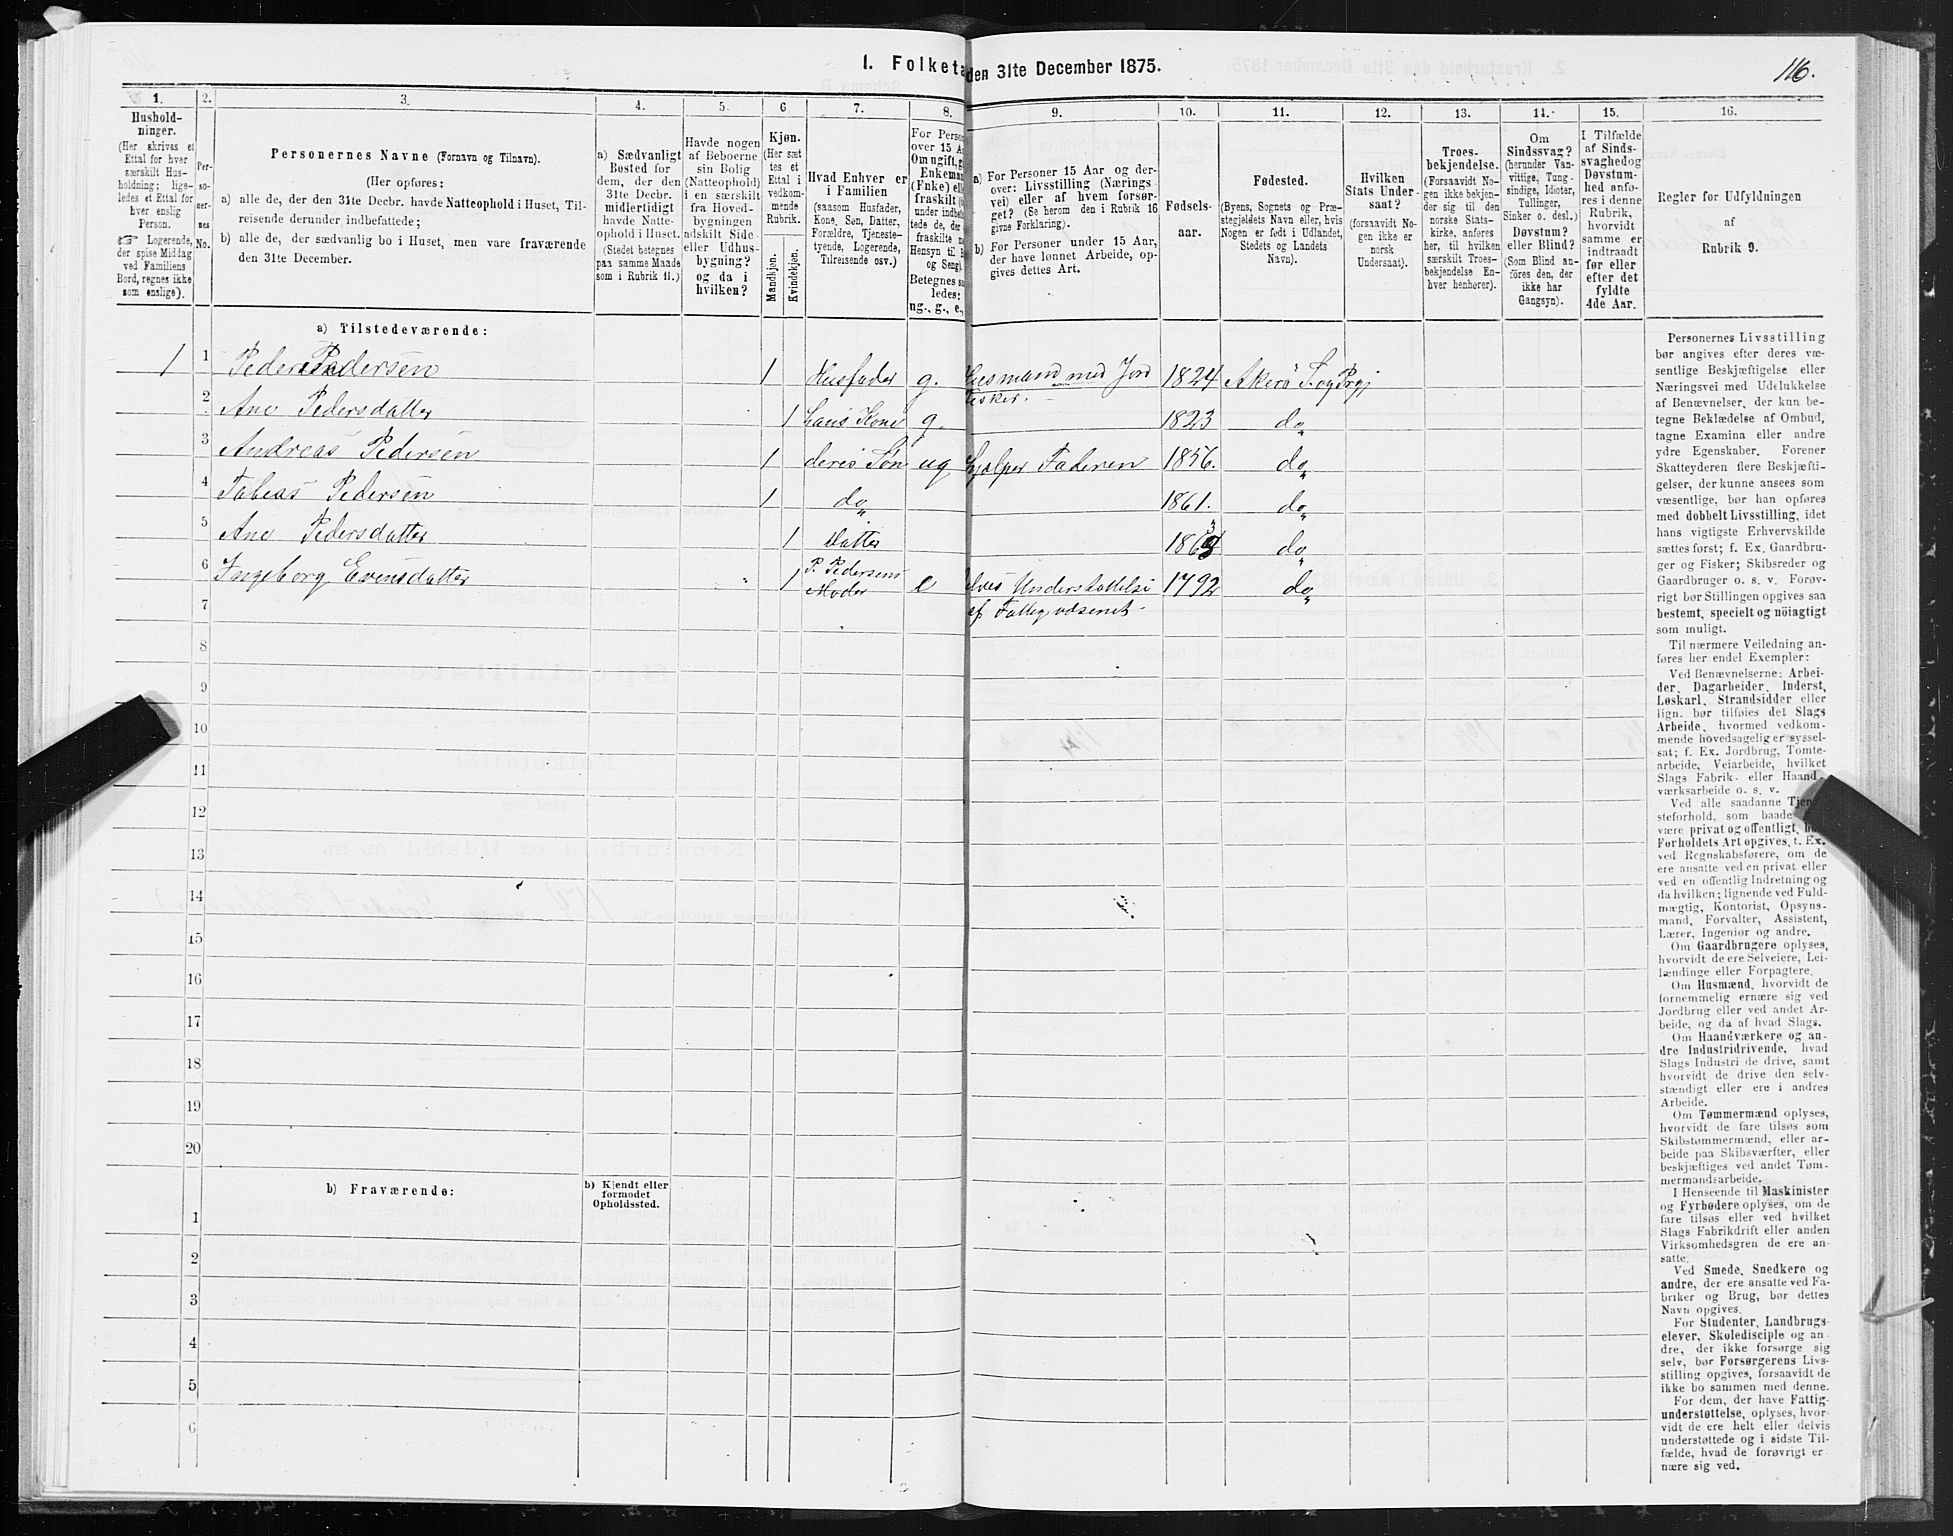 1. Folketæ den 31te December 1875.
116.
1.
2.
3.
4.
5.
6
7.
8.
9.
10.
11.
12.
13.
14.
15.
16.
Hushold-
ninger.
(Her skrives et
Ettal for hver
særskilt Hus-
holdning; lige-
ledes et Ettal for
hver enslig
Person.
☞ Logerende,
der spise Middag
ved Familiens
Bord, regnes ikke
som enslige).
Per-
so-
ner-
nes
No.
Personernes Navne (Fornavn og Tilnavn).
(Her opføres:
a) alle de, der den 31te Decbr. havde Natteophold i Huset, Til-
reisende derunder indbefattede;
b) alle de, der sædvanlig bo i Huset, men vare fraværende
den 31te December.
a) Sædvanligt
Bosted for
dem, der den
31te Decbr.
midlertidigt
havde Natte-
ophold i Huset.
(Stedet betegnes
paa samme Maade
som i Rubrik 11.)
Havde nogen
af Beboerne
sin Bolig
(Natteophold)
i en særskilt
fra Hoved-
bygningen
adskilt Side-
eller Udhus-
bygning?
og da i
hvilken?
Kjøn.
(Her sæt
tes et
Ettal i
vedkom-
mende
Rubrik.
Mandkjøn.
Kvindekjøn.
Hvad Enhver er
i Familien
(saasom Husfader,
Kone, Søn, Datter,
Forældre, Tjeneste-
tyende, Logerende,
Tilreisende osv.)
For Person
over 15 A
Om ugift, g
Enkeman
(Enke) ell
fraskilt (
under indb
tede de, der
fraskilte
Hensyn til B
og Seng).
Betegnes sa
ledes:
ug., g., e.,
a) For Personer 15 Aar og der-
over: Livsstilling (Nærings-
vei) eller af hvem forsør-
get? (Se herom den i Rubrik 16
givne Forklaring).
b) For Personer under 15 Aar,
der have lønnet Arbeide, op-
gives dettes Art.
Fødsels-
aar.
Fødested.
(Byens, Sognets og Præ-
stegjeldets Navn eller, hvis
Nogen er født i Udlandet,
Stedets og Landets
Navn).
Hvilken
Stats Under-
saat?
(forsaavidt No-
gen ikke er
norsk
Undersaat).
Troes-
bekjendelse.
(Forsaavidt No-
gen ikke bekjen-
der sig til den
norske Stats-
kirke, anføres
her, til hvilken
særskilt Troes-
bekjendelse En-
hver henhører).
Om
Sindssvag?
(herunder Van-
vittige, Tung-
sindige, Idioter,
Tullinger,
Sinker o. desl.)
Døvstum?
eller Blind?
(Som Blind an-
føres den, der
ikke har
Gangsyn).
I Tilfælde
af Sinds-
svaghedog
Døvstum-
hed anfø-
res i denne
Rubrik,
hvorvidt
samme er
indtraadt
før eller
efter det
fyldte
4de Aar.
Regler for Udfyldningen
af
Rubrik 9.
a) Tilstedeværende:
1 1 Peder Pedersen 1 Husfader g. Husmand med Jord 1824 Akerö S. og Prgj
Fisker.
2 Ane Pedersdatter 1 hans Kone g. 1823 do
3 Andreas Pedersen 1 deres Søn ug hjælper Faderen 1856. do
4 Tobias Pedersen 1 do 1861. do
5 Ane Pedersdatter 1 Datter 1863 do
6 Ingeborg Evensdatter 1 P. Pedersens Moder e Understøttelse 1792 do
7 af Fattigvæsenet
8
9
10
11
12
13
14
15
16
17
18
19
20
b) Fraværende:
b) Kjendt eller
formodet
Opholdssted.
1
2
3
4
5
6
Personernes Livsstilling
bør angives efter deres væ-
sentlige Beskjæftigelse eller
Næringsvei med Udelukkelse
af Benævnelser, der kun be-
tegne Beklædelse af Ombud,
tagne Examina eller andre
ydre Egenskaber. Forener
Skatteyderen flere Beskjæfti-
gelser, der kunne ansees som
væsentlige, bør han opføres
med dobbelt Livsstilling, idet
hans vigtigste Erhvervskilde
sættes først; f. Ex. Gaardbru-
ger og Fisker; Skibsreder og
Gaardbruger o. s. v. Forøv-
rigt bør Stillingen opgives saa
bestemt, specielt og nöiagtigt
som muligt.
Til nærmere Veiledning an-
føres her endel Exempler:
Ved Benævnelserne: Arbei-
der, Dagarbeider, Inderst,
Løskarl, Strandsidder eller
lign. bør tilføies det Slags
Arbeide, hvormed vedkom-
mende hovedsagelig er syssel-
sat; f. Ex. Jordbrug, Tomte-
arbeide, Veiarbeide, hvilket
Slags Fabrik- eller Haand-
værksarbeide o. s. v.
Ved alle saadanne Tjene-
steforhold, som baade
være privat og offentligt, bør
Forholdets Art opgives, f. Ex.
ved Regnskabsførere, om de
ere ansatte ved en privat eller
ved en offentlig Indretning og
da hvilken; lignende ved Fuld-
mægtig, Kontorist, Opsyns-
mand, Forvalter, Assistent,
Lærer, Ingeniør og andre.
Om Gaardbrugere oplyses,
hvorvidt de ere Selveiere, Lei-
lændinge eller Forpagtere.
Om Husmænd, hvorvidt de
fornemmelig ernære sig ved
Jordbrug eller ved andet Ar-
beide, og da af hvad Slags.
Om Haandværkere og an-
dre Industridrivende, hvad
Slags Industri de drive, samt
hvorvidt de drive den selv-
stændigt eller ere i andres
Arbeide.
Om Tømmermænd oplyses,
hvorvidt de fare tilsøs som
Skibstømmermænd, eller ar-
beide paa Skibsværfter, eller
beskjæftiges ved andet Tøm-
mermandsarbeide.
I Henseende til Maskinister
og Fyrbødere oplyses, om de
fare tilsøs eller ved hvilket
Slags Fabrikdrift eller anden
Virksomhedsgren de ere an-
satte.
Ved Smede, Snedkere og
andre, der ere ansatte ved Fa-
briker og Brug, bør dettes
Navn opgives.
For Studenter, Landbrugs-
elever, Skoledisciple og an-
dre, der ikke forsørge sig
selv, bør Forsørgerens Livs-
stilling opgives, forsaavidt de
ikke bo sammen med denne.
For dem, der have Fattig-
understøttelse, oplyses, hvor-
vidt de ere helt eller delvis
understøttede og i sidste Til-
fælde, hvad de forøvrigt er-
nære sig ved.